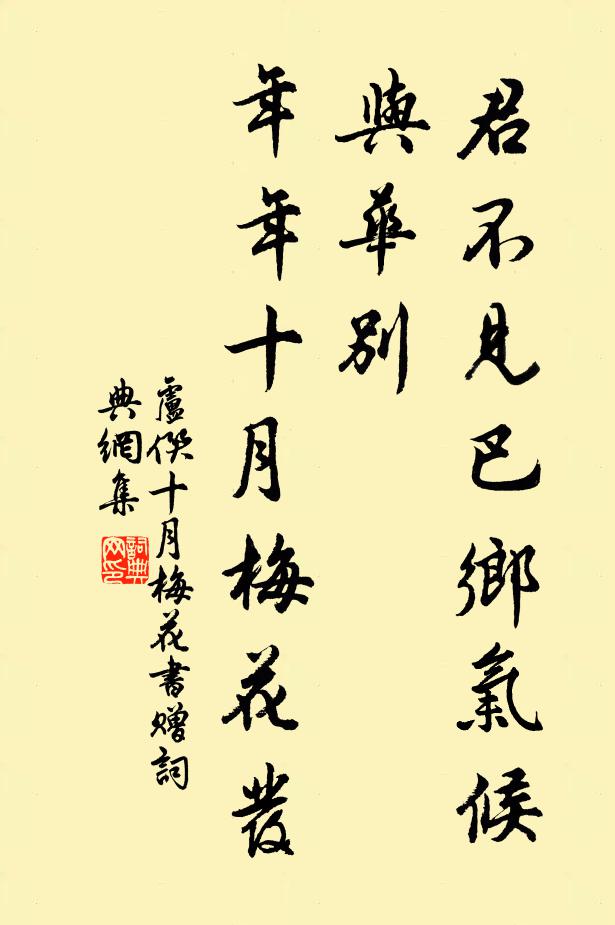 君不見巴鄉氣候
與華別
年年十月梅花發
盧僎十月梅花書贈詞
典網集
詞典
网印